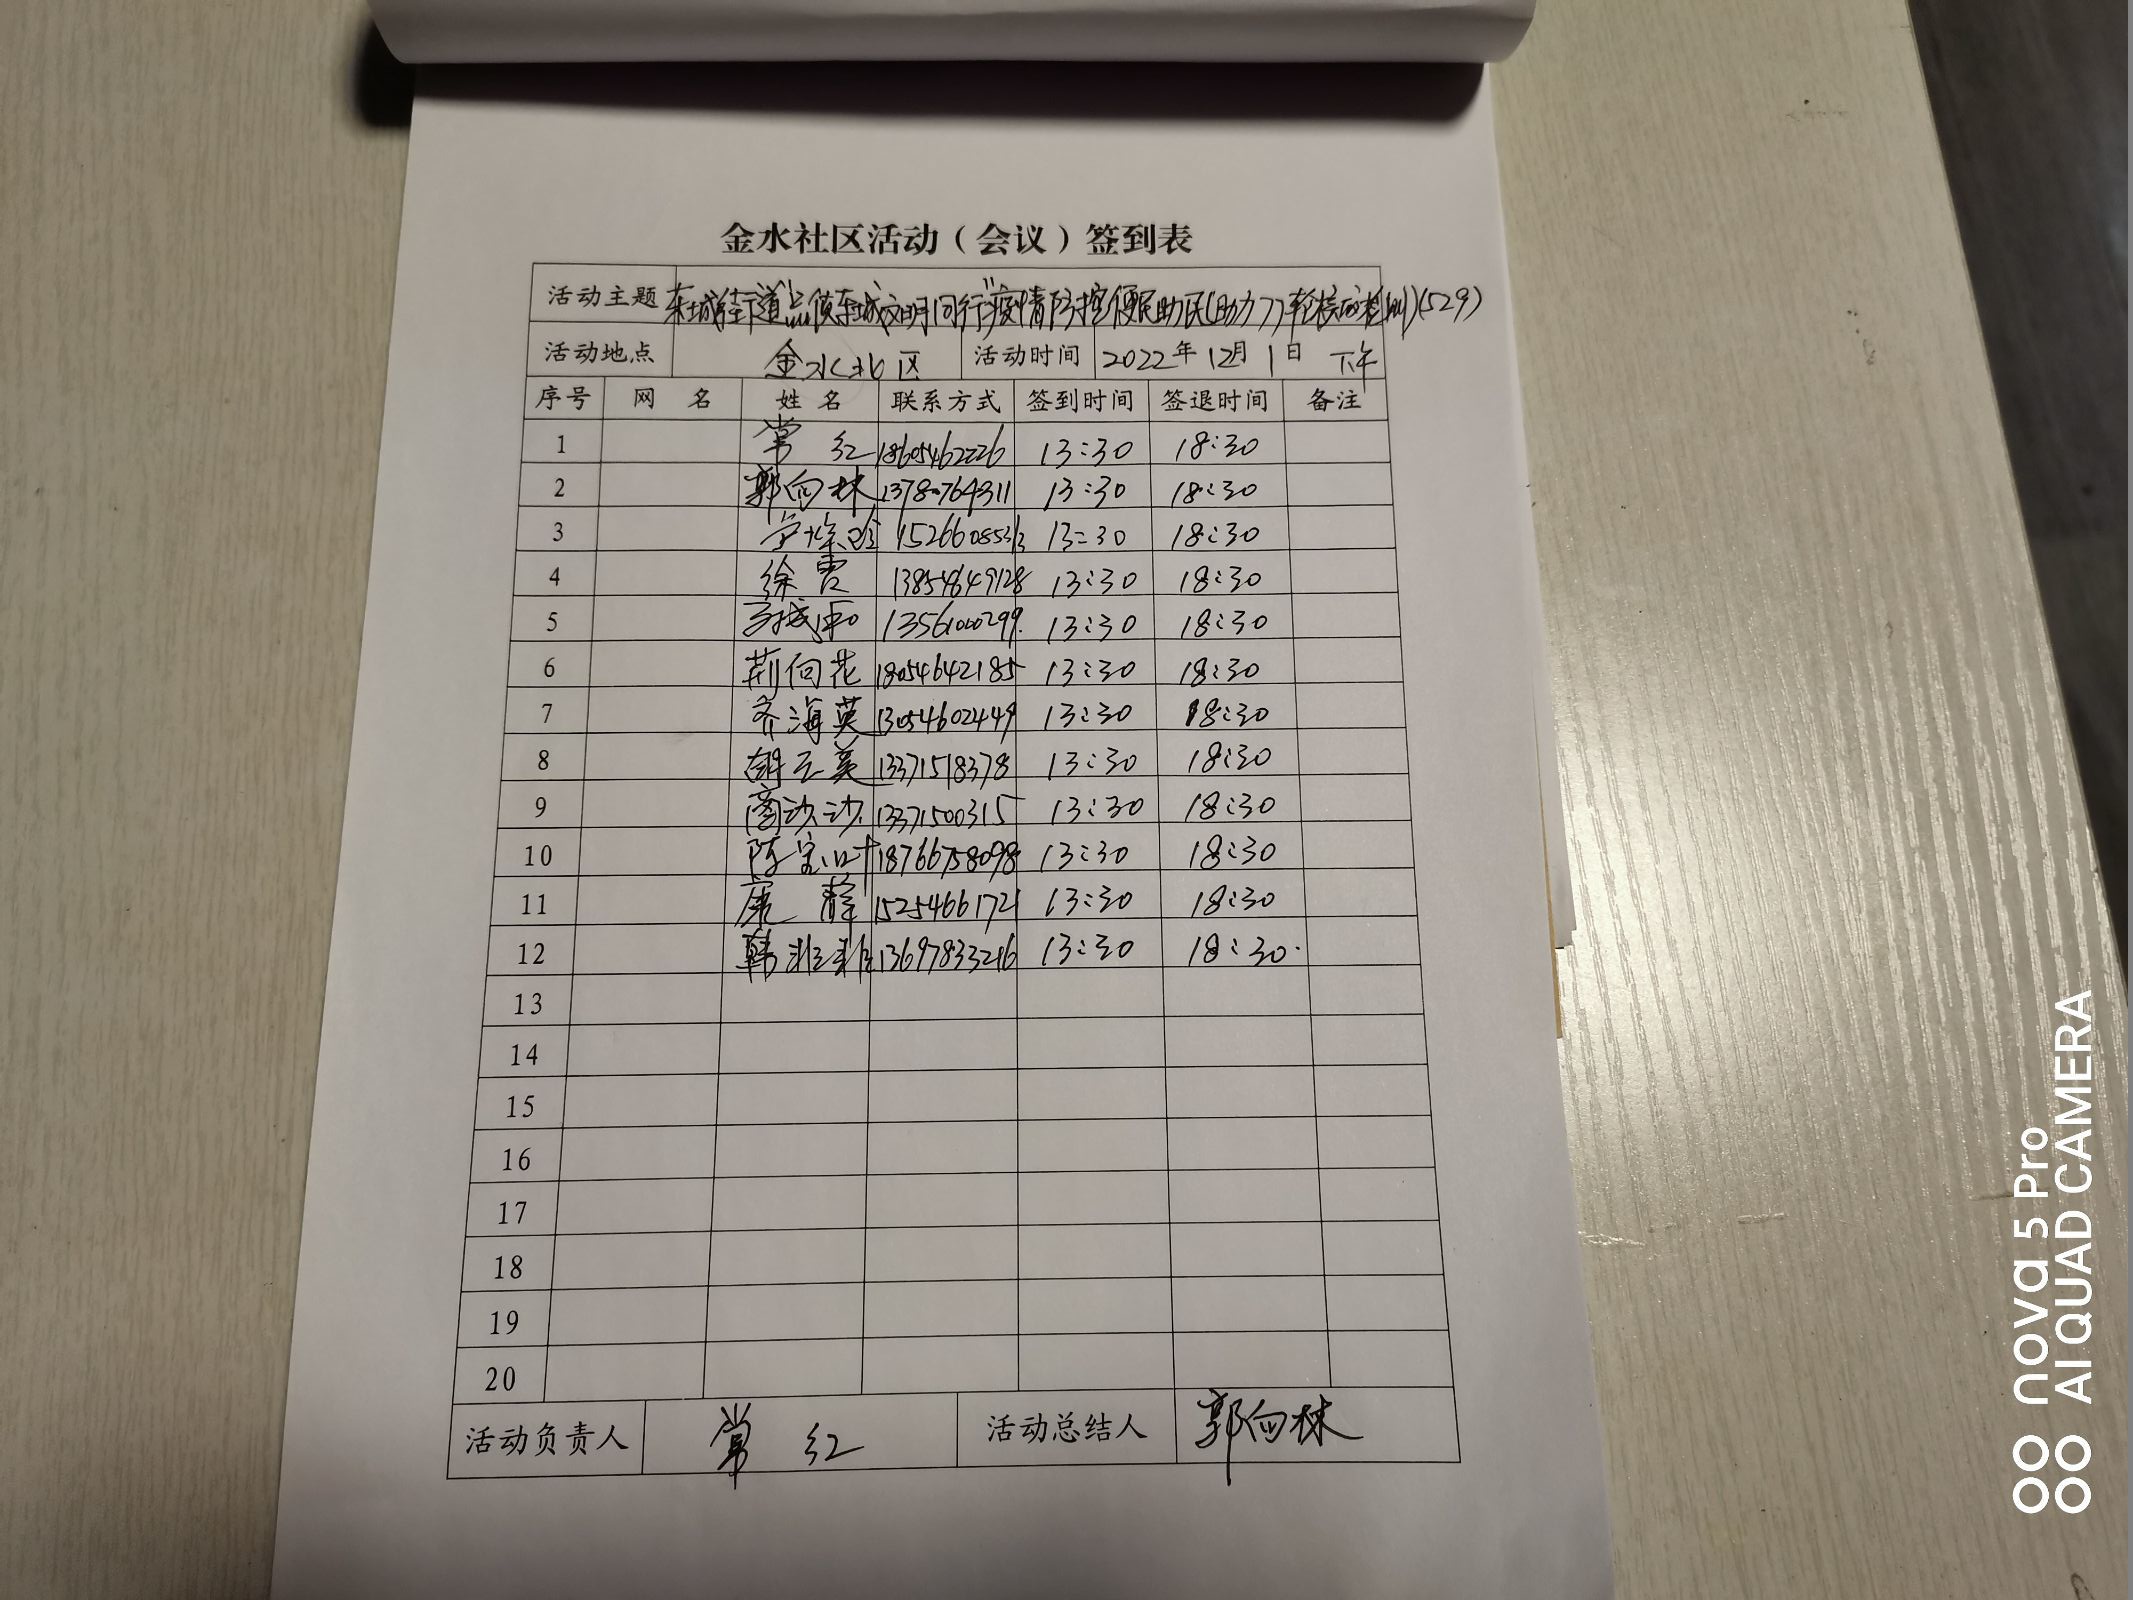 金水社区活动（会议）签到表
活动主题 东城街道"点侦东城文明同行"疫情防控便民助民(助力77轮核酸检测)(529)
活动地点 金水北区 活动时间 2022年12月1日 下午
序号 网名 姓名 联系方式 签到时间 签退时间 备注
1 常红 18605462226 13:30 18:30
2 郭向林 13780764311 13:30 18:30
3 13:30 18:30
4 徐霞 13854649128 13:30 18:30
5 13561000299 13:30 18:30
6 荆向花 18054642185 13:30 18:30
7 齐海英 13054602449 13:30 18:30
8 胡云美 13371518378 13:30 18:30
9 商沙沙 13371500315 13:30 18:30
10 陈宝叶 18766758098 13:30 18:30
11 静 15254661721 13:30 18:30
12 韩 13697833216 13:30 18:30
13
14
15
16
17
18
19
20
活动负责人 常红 活动总结人 郭向林
nova 5 Pro
AI QUAD CAMERA